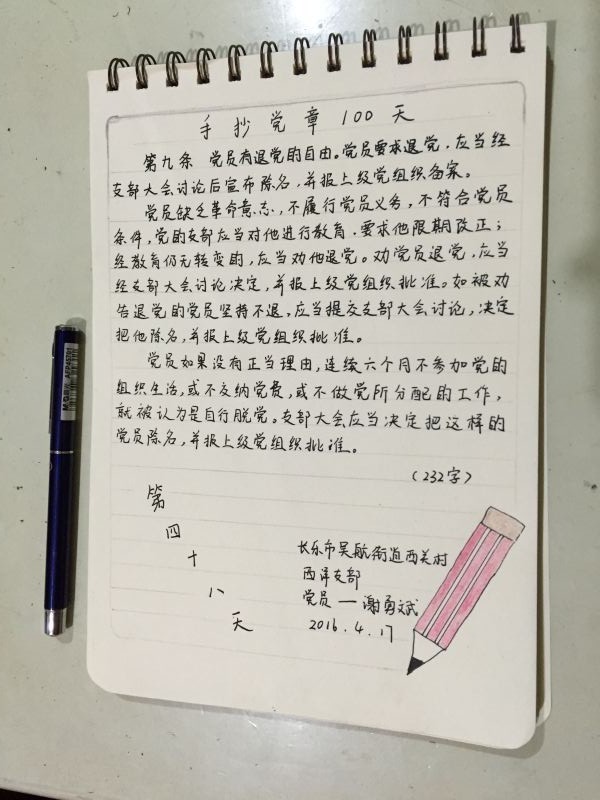 手抄党章100天
第九条 党员有退党的自由。党员要求退党，应当经
支部大会讨论后宣布除名，并报上级党组织备案。
党员缺乏革命意志，不履行党员义务，不符合党员
条件，党的支部应当对他进行教育，要求他限期改正；
经教育仍无转变的，应当劝他退党。劝党员退党，应当
经支部大会讨论决定，并报上级党组织批准。如被劝
告退党的党员坚持不退，应当提交支部大会讨论，决定
把他除名，并报上级党组织批准。
党员如果没有正当理由，连续六个月不参加党的
组织生活，或不交纳党费，或不做党所分配的工作，
就被认为是自行脱党。支部大会应当决定把这样的
党员除名，并报上级党组织批准。
（232字）
第四十八天
长乐市吴航街道西关村
西洋支部
党员——谢勇斌
2016.4.17
M&G AGP45701